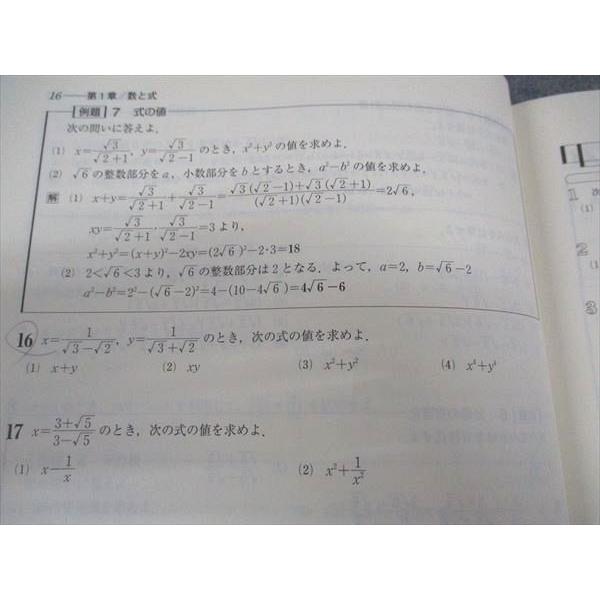 16 第1章／数と式
例題 7 式の値
次の問いに答えよ．
(1) x=√3/(√2+1)，y=√3/(√2−1) のとき，x²+y² の値を求めよ．
(2) √6 の整数部分を a，小数部分を b とするとき，a²−b² の値を求めよ．
解 (1) x+y=√3/(√2+1)+√3/(√2−1)=(√3(√2−1)+√3(√2+1))/((√2+1)(√2−1))=2√6，
xy=√3/(√2+1)・√3/(√2−1)=3 より，
x²+y²=(x+y)²−2xy=(2√6)²−2・3=18
(2) 2<√6<3 より，√6 の整数部分は 2 となる．よって，a=2，b=√6−2
a²−b²=2²−(√6−2)²=4−(10−4√6)=4√6−6
16 x=1/(√3−√2)，y=1/(√3+√2) のとき，次の式の値を求めよ．
(1) x+y (2) xy (3) x²+y² (4) x⁴+y⁴
17 x=(3+√5)/(3−√5) のとき，次の式の値を求めよ．
(1) x−1/x (2) x²+1/x²
1
(1)
2
(1)
3